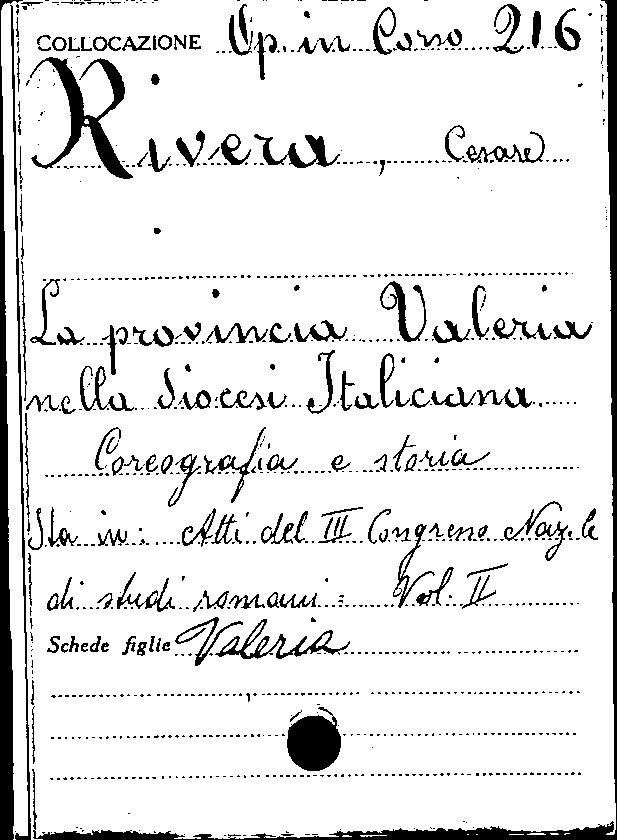 COLLOCAZIONE Op. in Corso 216
Rivera, Cesare
La provincia Valeria
nella diocesi Italiciana.
Coreografia e storia
Sta in: Atti del III Congresso Naz.le
di studi romani: Vol. II
Schede figlie Valeria